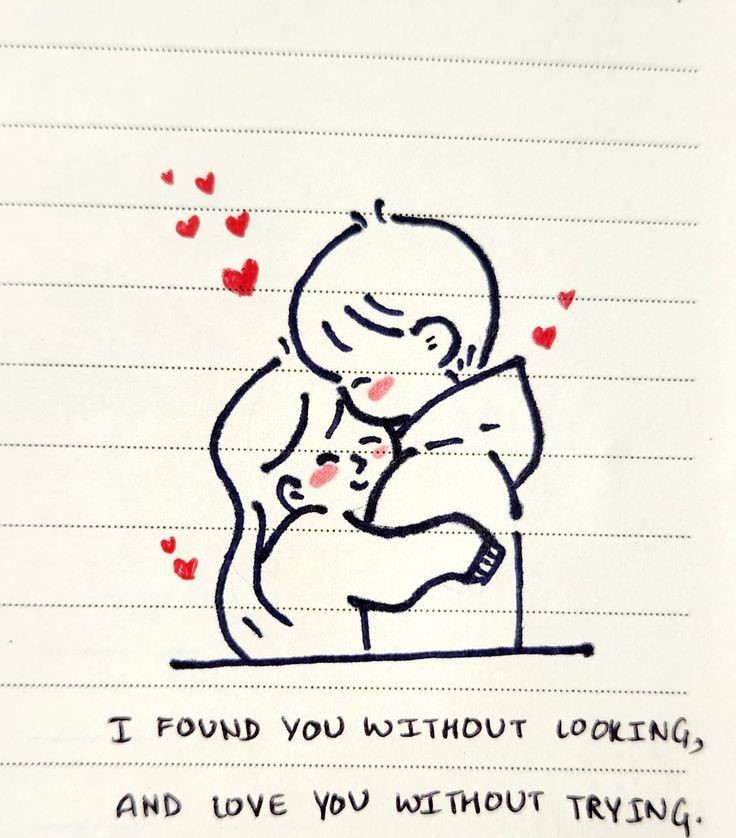 I FOUND YOU WITHOUT LOOKING,
AND LOVE YOU WITHOUT TRYING.